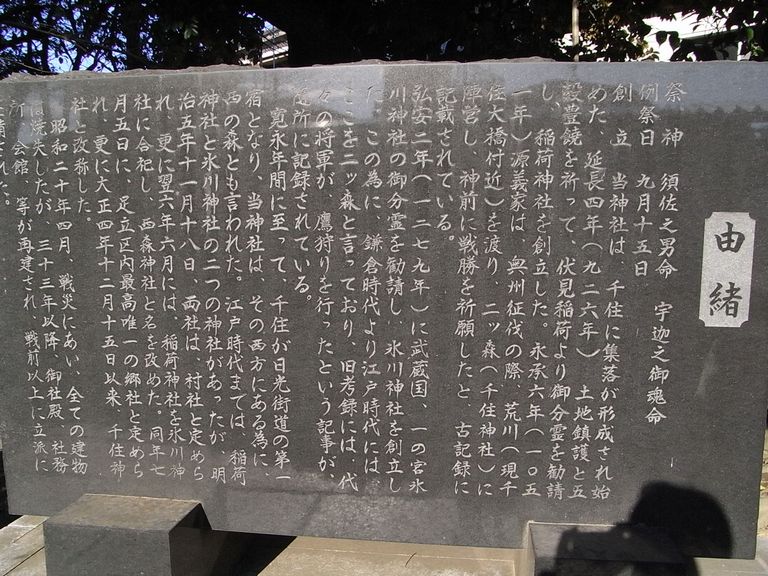 由緒
祭神 須佐之男命 宇迦之御魂命
例祭日 九月十五日
創立 当神社は、千住に集落が形成され始
めた、延長四年(九二六年)土地鎮護と五
穀豊饒を祈って、伏見稲荷より御分霊を勧請
し、稲荷神社を創立した。永承六年(一〇五
一年)源義家は、奥州征伐の際、荒川(現千
住大橋付近)を渡り、二ッ森(千住神社)に
陣営し、神前に戦勝を祈願したと、古記録に
記載されている。
弘安二年(一二七九年)に武蔵国、一の宮氷
川神社の御分霊を勧請し、氷川神社を創立し
た。この為に、鎌倉時代より江戸時代には、
ここを二ッ森と言っており、旧考録には、代
々の将軍が、鷹狩りを行ったという記事が、
随所に記録されている。
寛永年間に至って、千住が日光街道の第一
宿となり、当神社は、その西方にある為に、
西の森とも言われた。江戸時代までは、稲荷
神社と氷川神社の二つの神社があったが、明
治五年十一月十八日、両社は、村社と定めら
れ、更に翌六年六月には、稲荷神社を氷川神
社に合祀し、西森神社と名を改めた。同年七
月五日に、足立区内最高唯一の郷社と定めら
れ、更に大正四年十二月十五日以来、千住神
社と改称した。
昭和二十年四月、戦災にあい、全ての建物
は焼失したが、三十三年以降、御社殿、社務
所、会館、等が再建され、戦前以上に立派に
された。